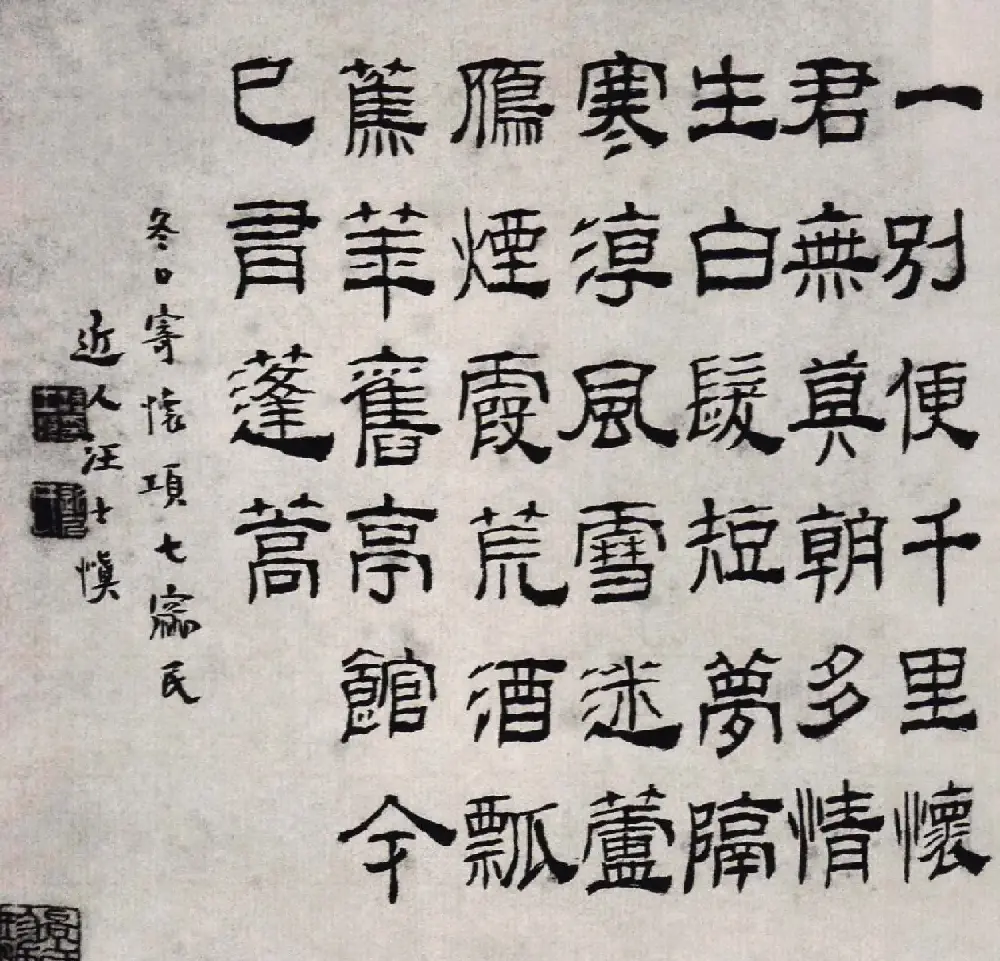 一别便千里懷
君無朝多情
生白髮短夢隔
寒風雪迷蘆
鴈煙霞荒酒瓢
蕉華舊亭館今
已蓬蒿
冬日寄懷項七民
近人汪士慎